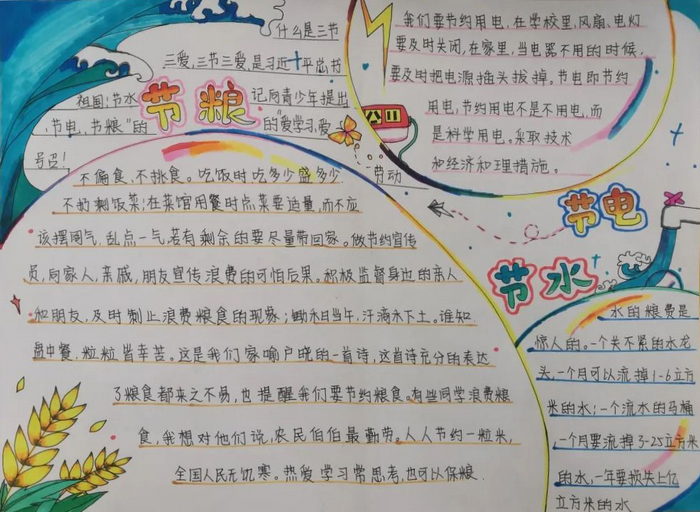 什么是三节
三爱,三节三爱,是习近平总书
记向青少年提出
的“爱学习、爱
劳动
祖国;节水
、节电、节粮”的
号召!
节粮
我们要节约用电,在学校里,风扇、电灯
要及时关闭,在家里,当电器不用的时候,
要及时把电源插头拔掉。节电即节约
用电,节约用电不是不用电,而
是科学用电。采取技术
和经济和理措施。
节电
不偏食、不挑食。吃饭时吃多少盛多少
不扔剩饭菜;在菜馆用餐时点菜要适量,而不应
该摆阔气,乱点一气,若有剩余的要尽量带回家。做节约宣传
员,向家人,亲戚,朋友宣传浪费的可怕后果。积极监督身边的亲人
和朋友,及时制止浪费粮食的现象;锄禾日当午,汗滴禾下土。谁知
盘中餐,粒粒皆辛苦。这是我们家喻户晓的一首诗,这首诗充分的表达
了粮食都来之不易,也提醒我们要节约粮食。有些同学浪费粮
食,我想对他们说,农民伯伯最勤劳。人人节约一粒米,
全国人民无饥寒。热爱学习常思考,也可以保粮.
节水
水的粮费是
惊人的。一个关不紧的水龙
头,一个月可以流掉1-6立方
米的水;一个流水的马桶
,一个月要流掉3-25立方米
的水,一年要损失上亿
立方米的水